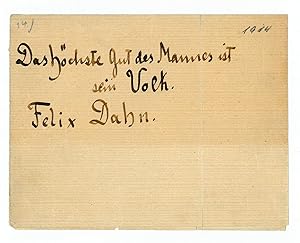 1914
Das höchste Gut des Mannes ist
sein Volk.
Felix Dahn.